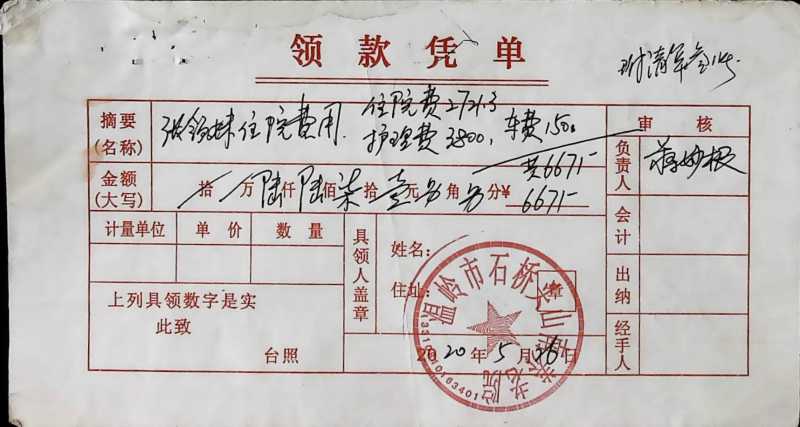 领款凭单
附清单叁张
摘要(名称) 张 妹住院费用. 住院费2721.3
护理费3800, 车费150.
共6671-
审核
金额(大写) 拾 万 陆 仟 陆 佰 柒 拾 壹 元 角 分 ¥ 6671-
负责人
计量单位 单价 数量
具领人盖章
姓名:
住址:
会计
上列具领数字是实
此致
台照
出纳
2020年5月26日
经手人
温岭市石桥头山 老院